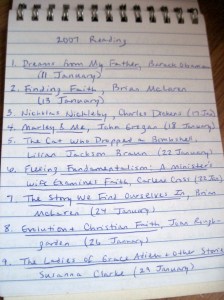 2007 Reading
1. Dreams from My Father, Barack Obama
(11 January)
2. Finding Faith, Brian McLaren
(13 January)
3. Nicholas Nickleby, Charles Dickens (17 Jan)
4. Marley & Me, John Grogan (18 January)
5. The Cat Who Dropped a Bombshell,
Lilian Jackson Braun (22 January)
6. Fleeing Fundamentalism: A Minister's
Wife Examines Faith, Carlene Cross (23 Jan)
7. The Story We Find Ourselves In, Brian
McLaren (24 January)
8. Evolution & Christian Faith, Joan Rough-
garden (26 January)
9. The Ladies of Grace Adieu & Other Stories
Susanna Clarke (29 January)